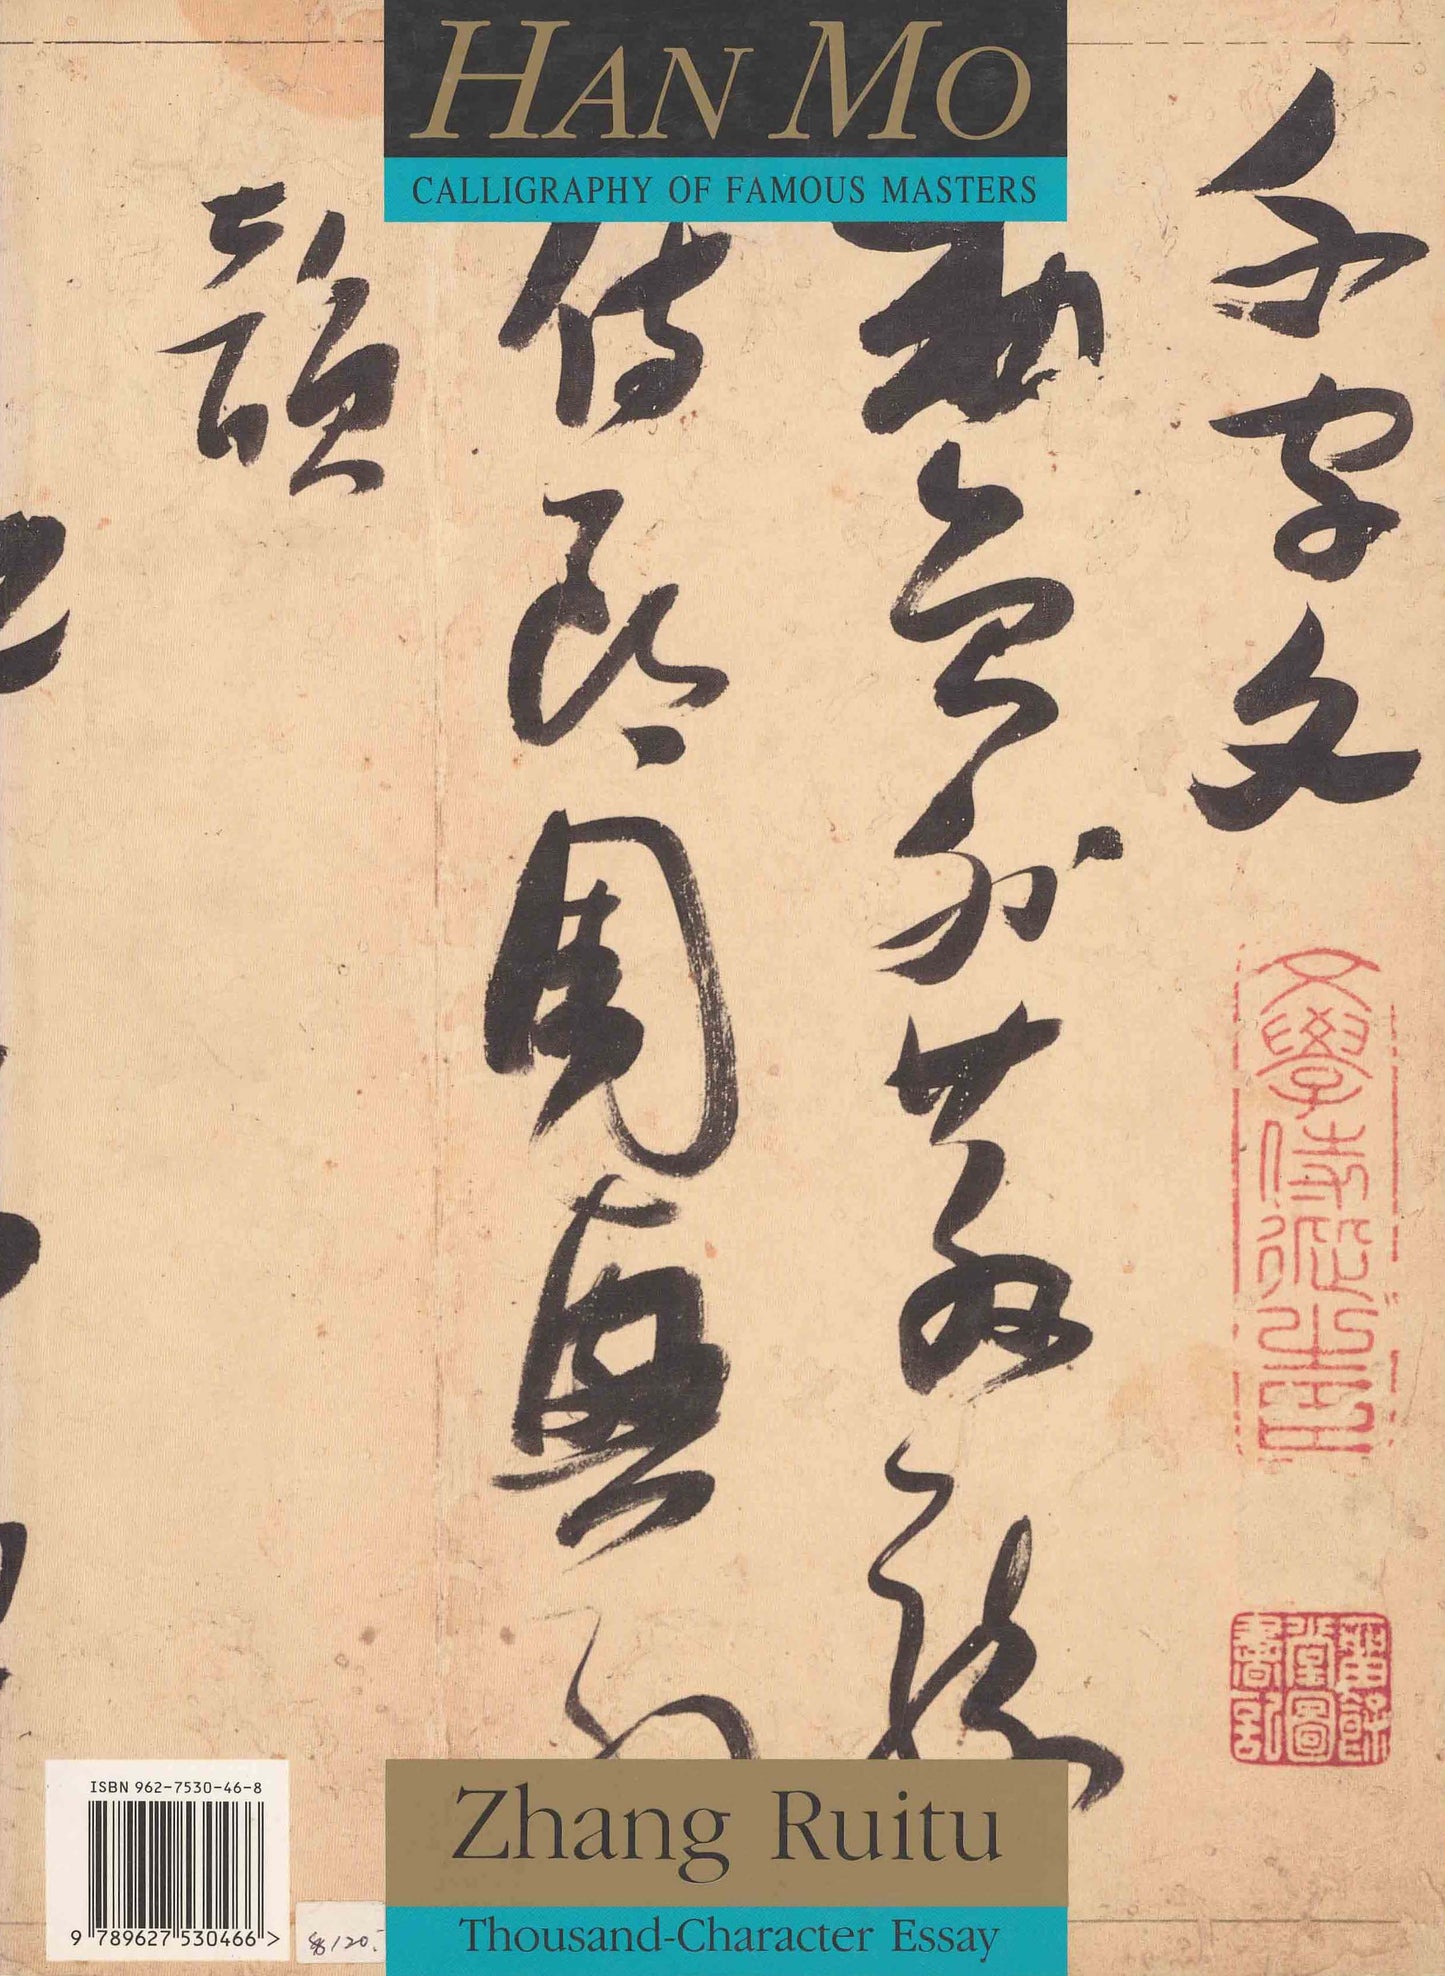 HAN MO
CALLIGRAPHY OF FAMOUS MASTERS
千字文
勅員外散騎
侍郎周興
韻
文學侍從之臣
ISBN 962-7530-46-8
9 789627 530466 >
Zhang Ruitu
Thousand-Character Essay